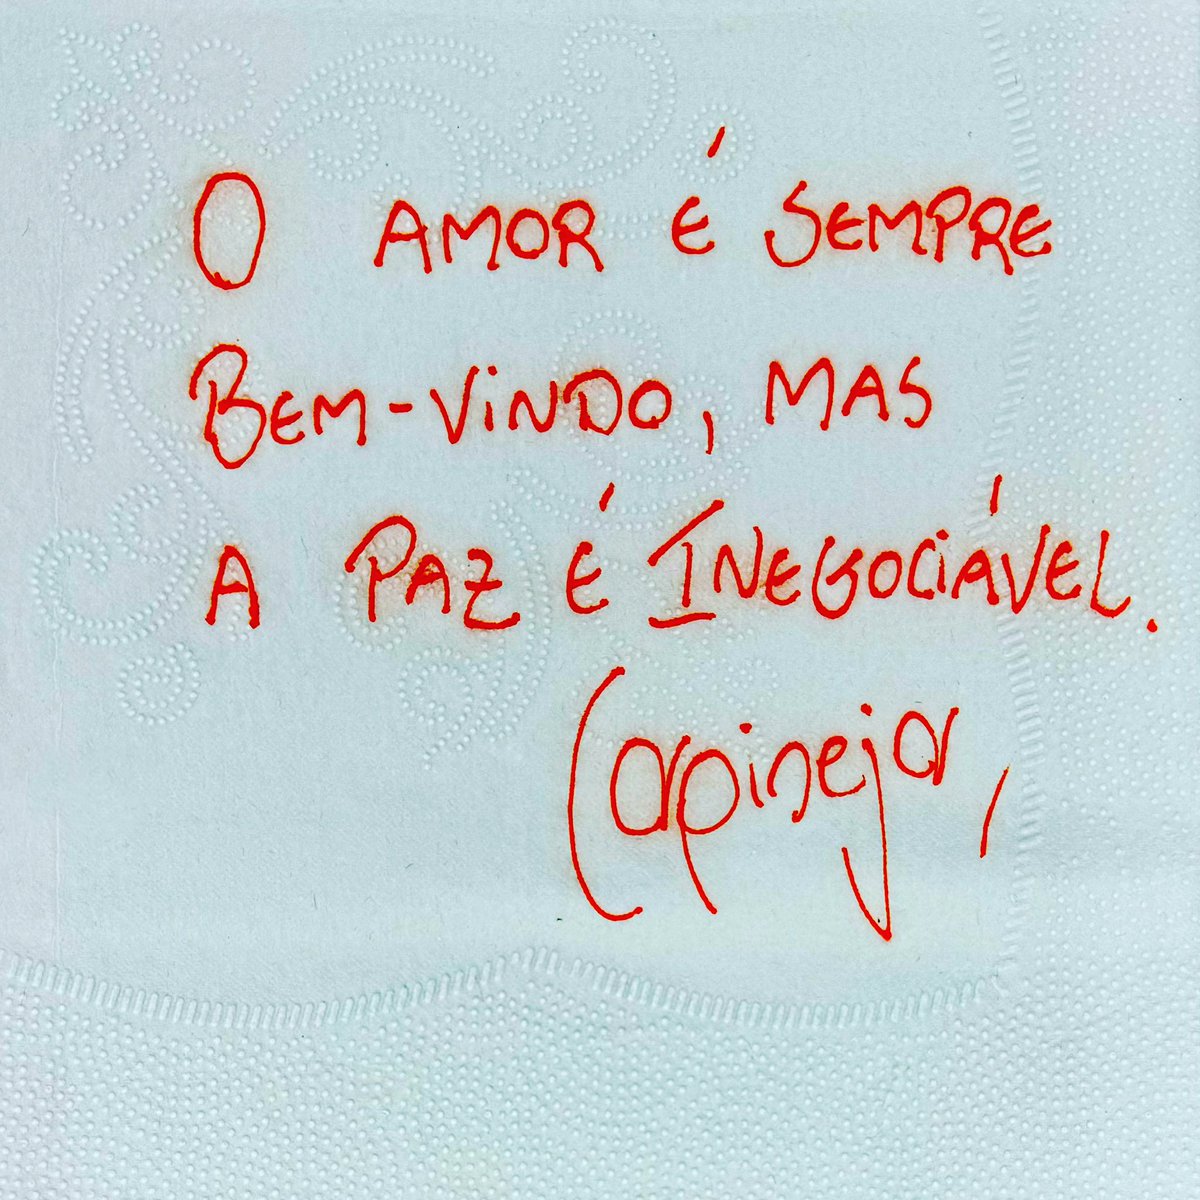 O AMOR É SEMPRE
BEM-VINDO, MAS
A PAZ É INEGOCIÁVEL.
Carpinejar,